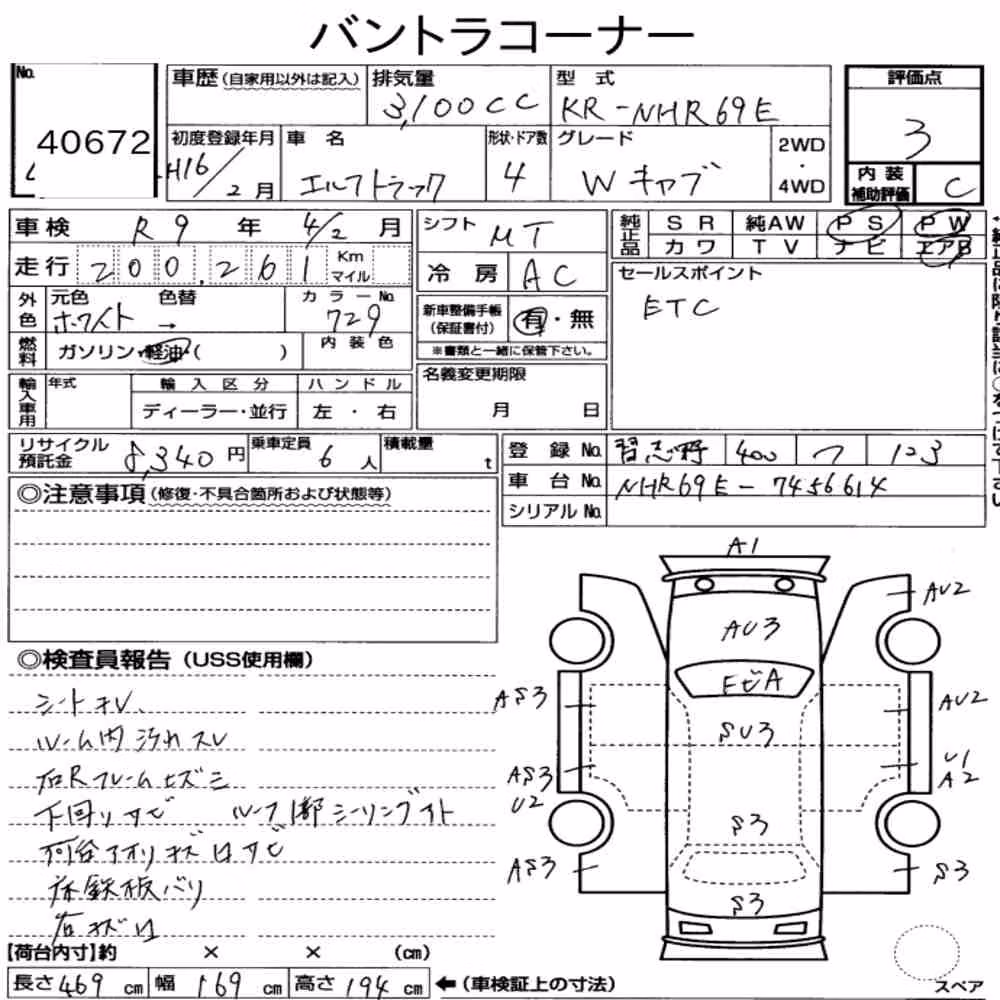 バントラコーナー
No. 車歴 (自家用以外は記入) 排気量 型 式 評価点
3,100CC KR-NHR69E
40672 初度登録年月 車 名 形状・ドア数 グレード 2WD 3
H16/2月 エルフトラック 4 Wキャブ ・ 4WD 内装補助評価 C
車検 R9 年 4/2 月 シフト MT 純正品 SR 純AW PS PW
カワ TV ナビ エアB
走行 200,261 Km マイル 冷房 AC セールスポイント
外色 元色 色替 カラーNo. ETC
ホワイト → 729 新車整備手帳(保証書付) 有・無
燃料 ガソリン・軽油・( ) 内装色 ※書類と一緒に保管下さい。
輸入車用 年式 輸入区分 ハンドル 名義変更期限
ディーラー・並行 左・右 月 日
リサイクル預託金 8,340円 乗車定員 6人 積載量 t 登録No. 習志野 400 つ 123
車台No. NHR69E-7456614
◎注意事項 (修復・不具合箇所および状態等) シリアルNo.
A1
AU2
AU3
◎検査員報告 (USS使用欄)
EビA
シートキレ、 AS3 AU2
ルーム内汚れスレ SU3
右Rフレームヒズミ AS3 U1
U2 A2
下回りサビ ルーフ1部シーリングアト S3
荷台アオリキズ凹サビ AS3 S3
床鉄板バリ S3
右キズ凹
【荷台内寸】約 × × (cm)
長さ469 cm 幅 169 cm 高さ194 cm ←(車検証上の寸法) スペア